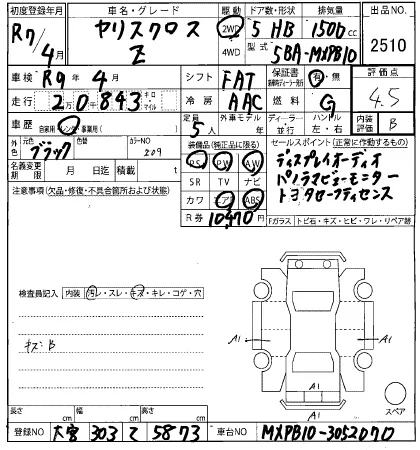 初度登録年月 車名・グレード 駆動 ドア数・形状 排気量 出品NO.
R7/4月 ヤリスクロス Z 2WD 4WD 5 HB 1500cc
型式 5BA-MXPB10 2510
車検 R9年4月 シフト FAT 保証書 有・無 評価点
走行 20843 キロ マイル 冷房 AAC 燃料 G 4.5
車歴 自家用 レンタ 事業用( ) 定員 5人 外車モデル 年 ディーラー 並行 ハンドル 左・右 内装評価 B
外色 元色 ブラック 色替 カラーNO 209 装備品(純正品に限る) セールスポイント(正常に作動するもの)
名義変更期限 月 日 積載 t PS PW AW ディスプレイオーディオ
注意事項(欠品・修復・不具合箇所および状態) SR TV ナビ パノラマビューモニター
カワ エアB ABS トヨタセーフティセンス
R券 10470円 Fガラス トビ石・キズ・ヒビ・ワレ・リペア跡
検査員記入 内装 汚レ・スレ・キズ・キレ・コゲ・穴
キズB
A1 A1
A1
スペア
長さ cm 幅 cm 高さ cm
登録NO 大宮 303 て 5873 車台NO MXPB10-3052070